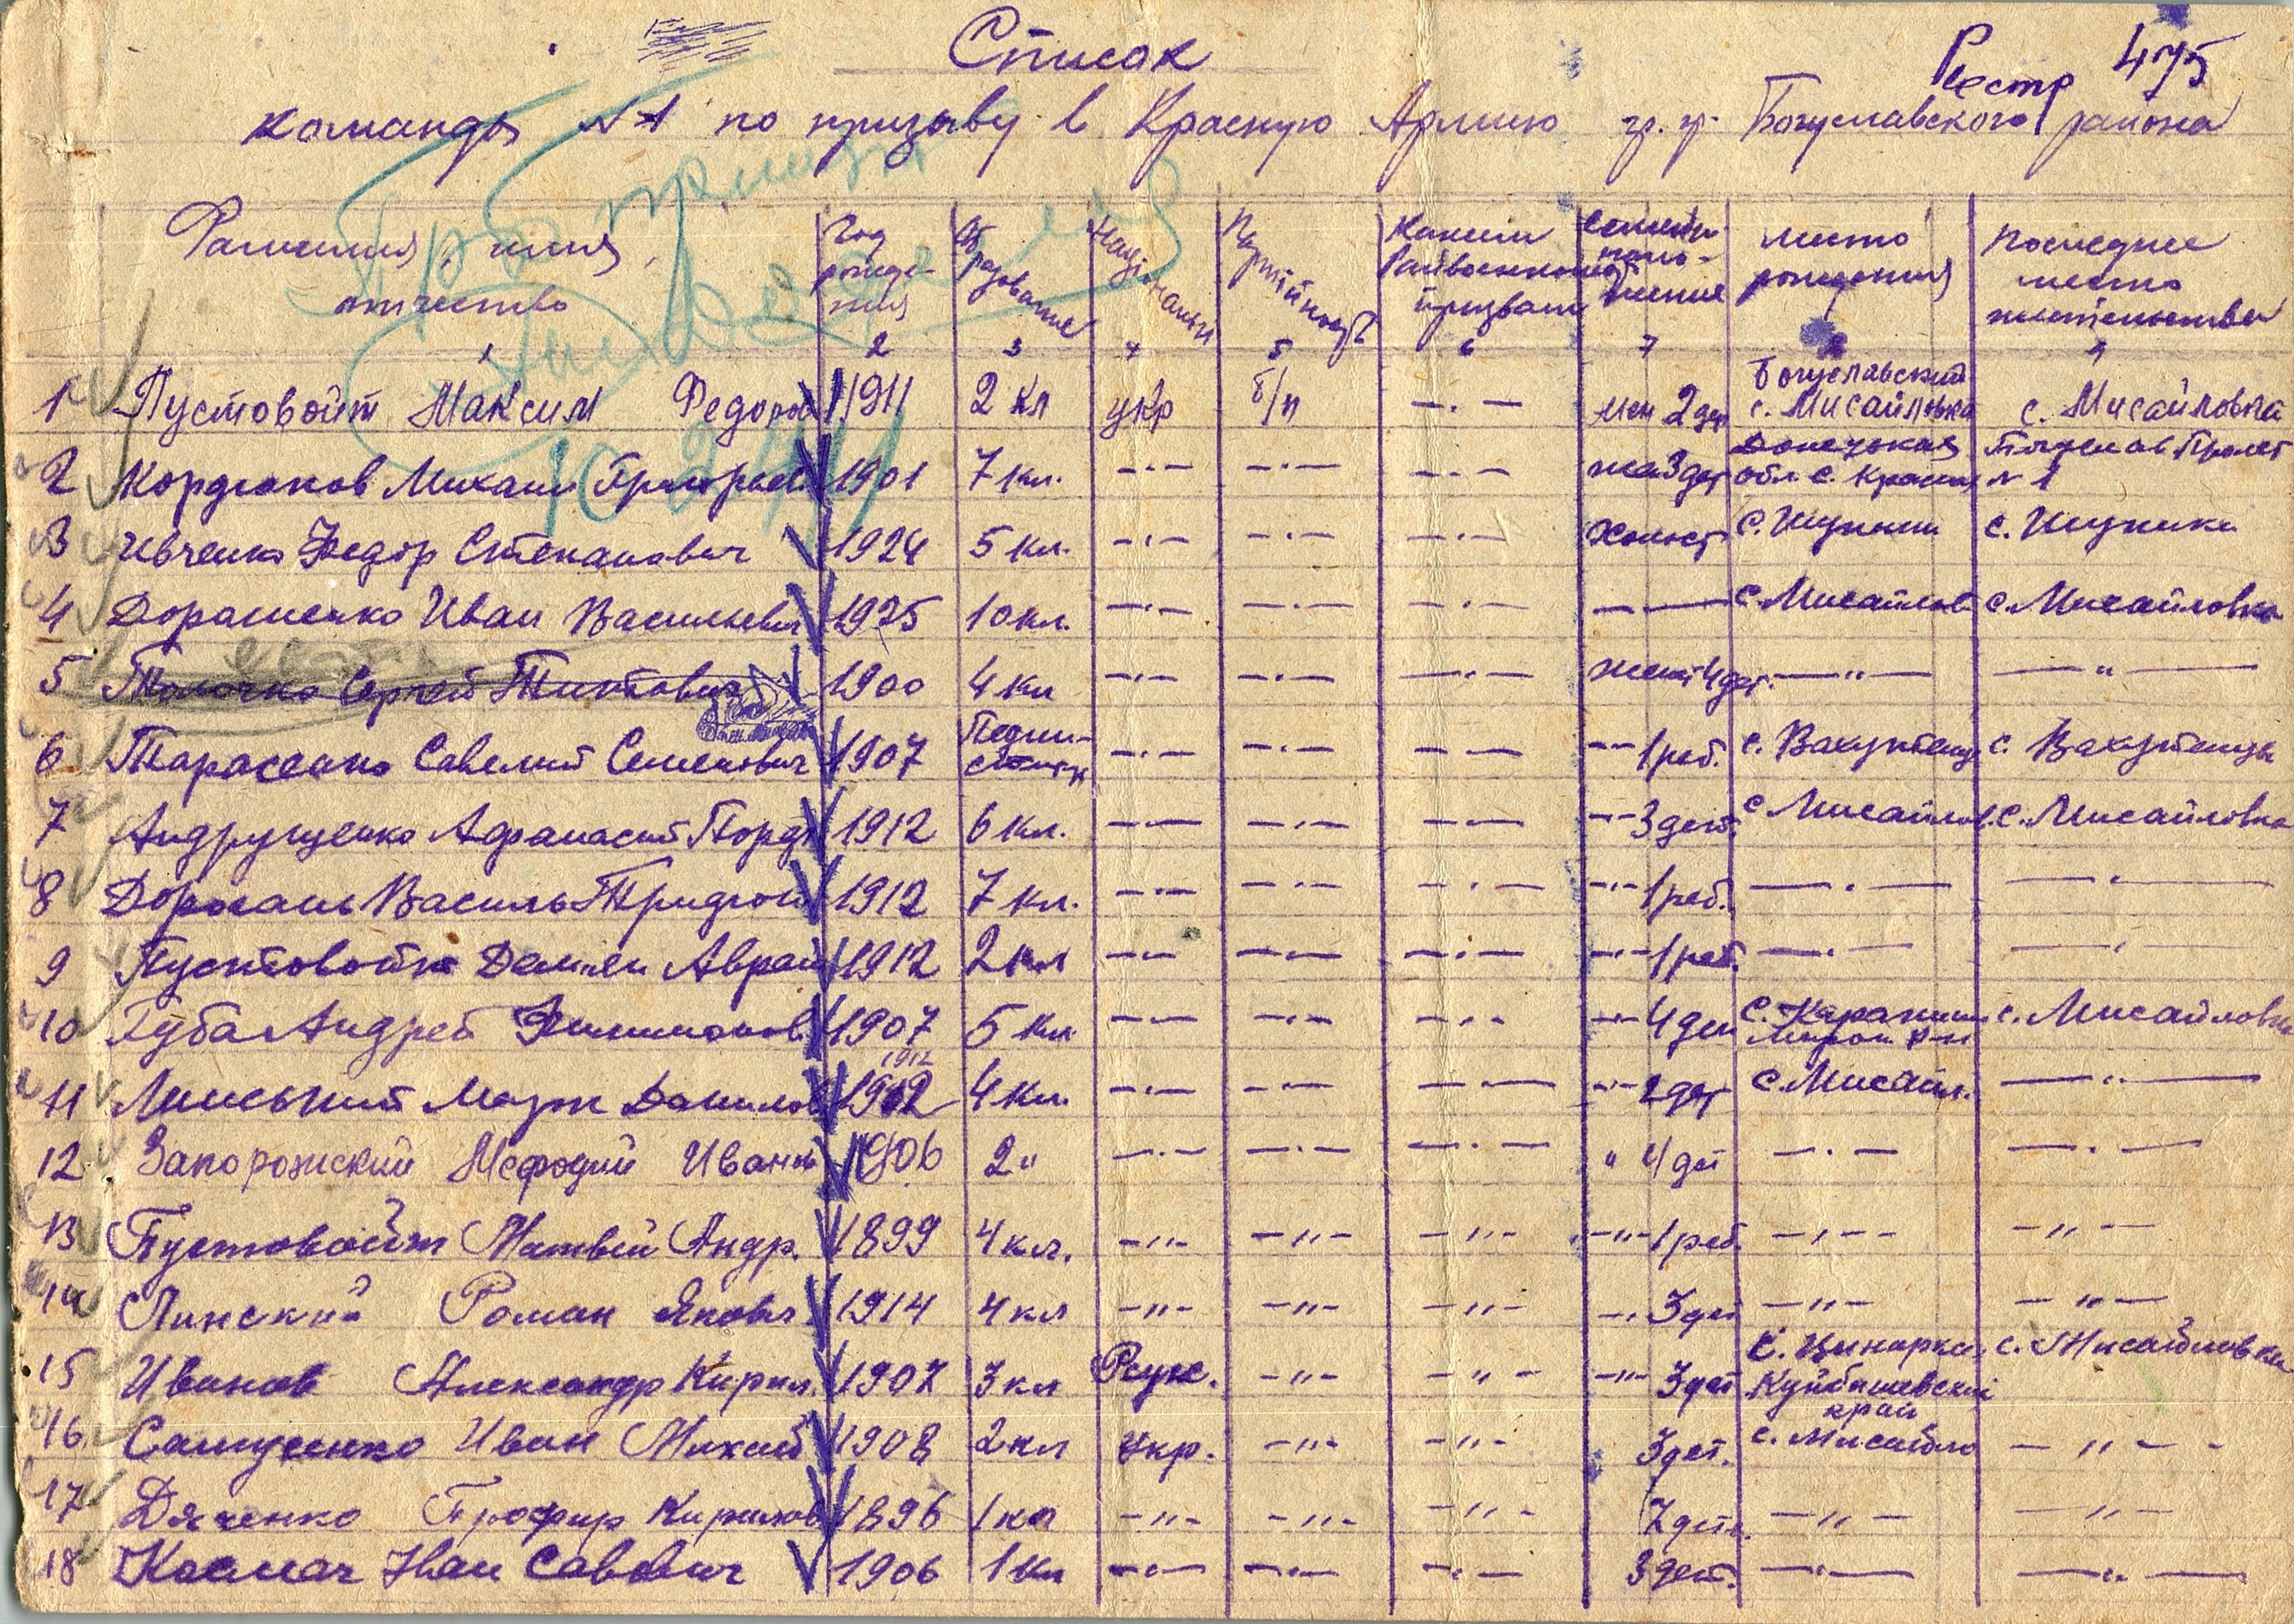 Список
Реестр 475
команды №1 по призыву в Красную Армию гр. гр. Богуславского района
Фамилия, имя, отчество
Год рождения
Образование
Национальн
Партійность
Каким Райвоенкоматом призван
Семейн. положение
место рождения
последнее место жительства
1 2 3 4 5 6 7 8 9
1 Пустовойт Максим Федоров 1911 2 кл укр б/п —·— жен 2 дет Богуславский с. Мисайловка с. Мисайловка
2 Кордюков Михаил Григорьев 1901 7 кл. —·— —·— —·— жа 3 дет Донецкая обл. с. № 1
3 Ивченко Федор Степанович 1924 5 кл. —·— —·— —·— Холост с. с.
4 Дорошенко Иван Васильевич 1925 10 кл. —·— —·— —·— — с. Мисайлов с. Мисайловка
5 Толочко Сергей Титович 1900 4 кл —·— —·— —·— женат 4 дет. —"— —"—
6 Тарасенко Савелий Семенович 1907 —·— —·— —·— —·— 1 реб. с. с.
7 Андрущенко Афанасий Горд 1912 6 кл. —·— —·— —·— —·— 3 дет. с Мисайлов. с. Мисайловка
8 Дорогань Василь 1912 7 кл. —·— —·— —·— —·— 1 реб. —·— —·—
9 Пустовойт Демьян Аврам 1912 2 кл —·— —·— —·— —·— 1 реб. —·— —·—
10 Губа Андрей Филимонов. 1907 5 кл —·— —·— —·— —·— 4 дет с. Мирон р-н с. Мисайловка
1912
11 Марк Данилов 1902 4 кл. —·— —·— —·— —·— 2 дет с. Мисайл. —"—
12 Запорожский Мефодий Иванов 1906 2 " —·— —·— —·— " 4 дет —·— —·—
13 Пустовойт Матвей Андр. 1899 4 кл. —"— —"— —"— —"— 1 реб. —"— —"—
14 Линский Роман Якович 1914 4 кл —"— —"— —"— —"— 3 дет —"— —"—
15 Иванов Александр Кирил. 1907 3 кл Рсус. —"— —"— —"— 3 дет с. Куйбышевский край с. Мисайловка
16 Самусенко Иван Михайл 1908 2 кл укр. —"— —"— 3 дет. с. Мисайло —"—
17 Дяченко Кирилов 1896 1 кл —"— —"— —"— 7 дет. —"— —"—
18 Космач Иван Савович 1906 1 кл —·— —·— —·— 3 дет. —·— —·—